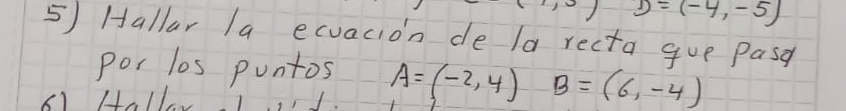 D=(-4,-5)
5) Hallar la ecuación de la recta que pasa
por los puntos A=(-2,4) B=(6,-4)
6) Hallar